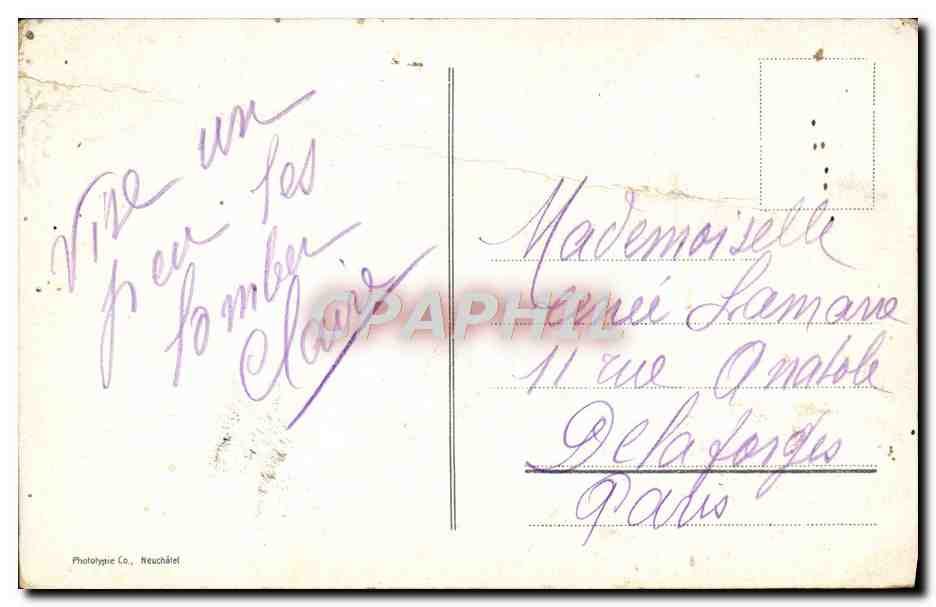 Vise un
peu les
tomber
Claire
Mademoiselle
Lamare
11 rue Anatole
Delaforges
Paris
CPAPHIL
Phototypie Co., Neuchâtel